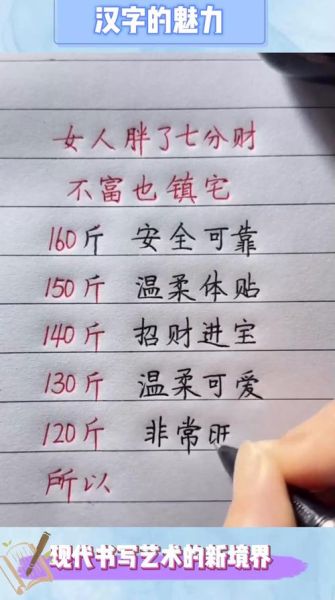 汉字的魅力
女人胖了七分财
不富也镇宅
160斤 安全可靠
150斤 温柔体贴
140斤 招财进宝
130斤 温柔可爱
120斤 非常旺
所以
现代书写艺术的新境界